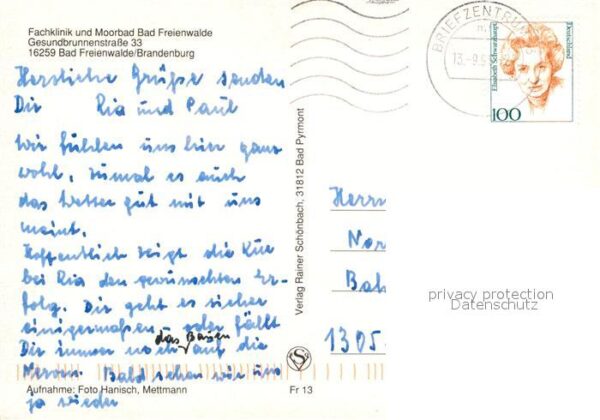 Fachklinik und Moorbad Bad Freienwalde
Gesundbrunnenstraße 33
16259 Bad Freienwalde/Brandenburg
Herzliche Grüße senden
Dir Ria und Paul
Wir fühlen uns hier ganz
wohl, zumal es auch
das Wetter gut mit uns
meint.
Hoffentlich zeigt die Kur
bei Ria den gewünschten Er-
folg. Dir geht es sicher
einigermaßen, oder fällt
das Bauen
Dir immer noch auf die
Nerven. Bald sehen wir uns
ja wieder
Aufnahme: Foto Hanisch, Mettmann
Fr 13
Verlag Rainer Schönbach, 31812 Bad Pyrmont
BRIEFZENTRUM
13.-9.9
Elisabeth Schwarzhaupt
Deutschland
100
Herrn
Nor
Bah
1305
privacy protection
Datenschutz